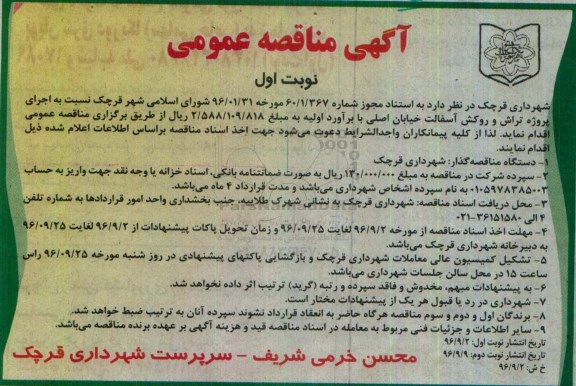 آگهی مناقصه عمومی
نوبت اول
شهرداری قرچک در نظر دارد به استناد مجوز شماره ۶۰/۱/۳۶۷ مورخه ۹۶/۰۱/۳۱ شورای اسلامی شهر قرچک نسبت به اجرای
پروژه تراش و روکش آسفالت خیابان اصلی با برآورد اولیه به مبلغ ۲/۵۸۸/۱۰۹/۸۱۸ ریال از طریق برگزاری مناقصه عمومی
اقدام نماید. لذا از کلیه پیمانکاران واجدالشرایط دعوت می‌شود جهت اخذ اسناد مناقصه براساس اطلاعات اعلام شده ذیل
اقدام نمایند.
۱- دستگاه مناقصه‌گذار: شهرداری قرچک
۲- سپرده شرکت در مناقصه به مبلغ ۱۳۰/۰۰۰/۰۰۰ ریال به صورت ضمانتنامه بانکی، اسناد خزانه یا وجه نقد جهت واریز به حساب
۰۱۰۵۹۷۸۳۸۵۰۰۳ به نام سپرده اشخاص شهرداری می‌باشد و مدت قرارداد ۴ ماه می‌باشد.
۳- محل دریافت اسناد مناقصه: شهرداری قرچک به نشانی شهرک طلاییه، جنب بخشداری واحد امور قراردادها به شماره تلفن
۴ الی ۳۶۱۵۱۵۸۰-۰۲۱
۴- مهلت اخذ اسناد مناقصه از مورخه ۹۶/۹/۲ لغایت ۹۶/۰۹/۲۵ و زمان تحویل پاکات پیشنهادات از ۹۶/۹/۲ لغایت ۹۶/۰۹/۲۵
به دبیرخانه شهرداری قرچک می‌باشد.
۵- تشکیل کمیسیون عالی معاملات شهرداری قرچک و بازگشایی پاکتهای پیشنهادی در روز شنبه مورخه ۹۶/۰۹/۲۵ راس
ساعت ۱۵ در محل سالن جلسات شهرداری می‌باشد.
۶- به پیشنهادات مبهم، مخدوش و فاقد سپرده و رتبه (گرید) ترتیب اثر داده نخواهد شد.
۷- شهرداری در رد یا قبول هر یک از پیشنهادات مختار است.
۸- برندگان اول و دوم و سوم مناقصه هرگاه حاضر به انعقاد قرارداد نشوند سپرده آنان به ترتیب ضبط خواهد شد.
۹- سایر اطلاعات و جزئیات فنی مربوط به معامله در اسناد مناقصه قید و هزینه آگهی بر عهده برنده مناقصه می‌باشد.
تاریخ انتشار نوبت اول: ۹۶/۹/۲
تاریخ انتشار نوبت دوم: ۹۶/۹/۹
خ ش: ۹۶/۹/۲
محسن خرمی شریف - سرپرست شهرداری قرچک